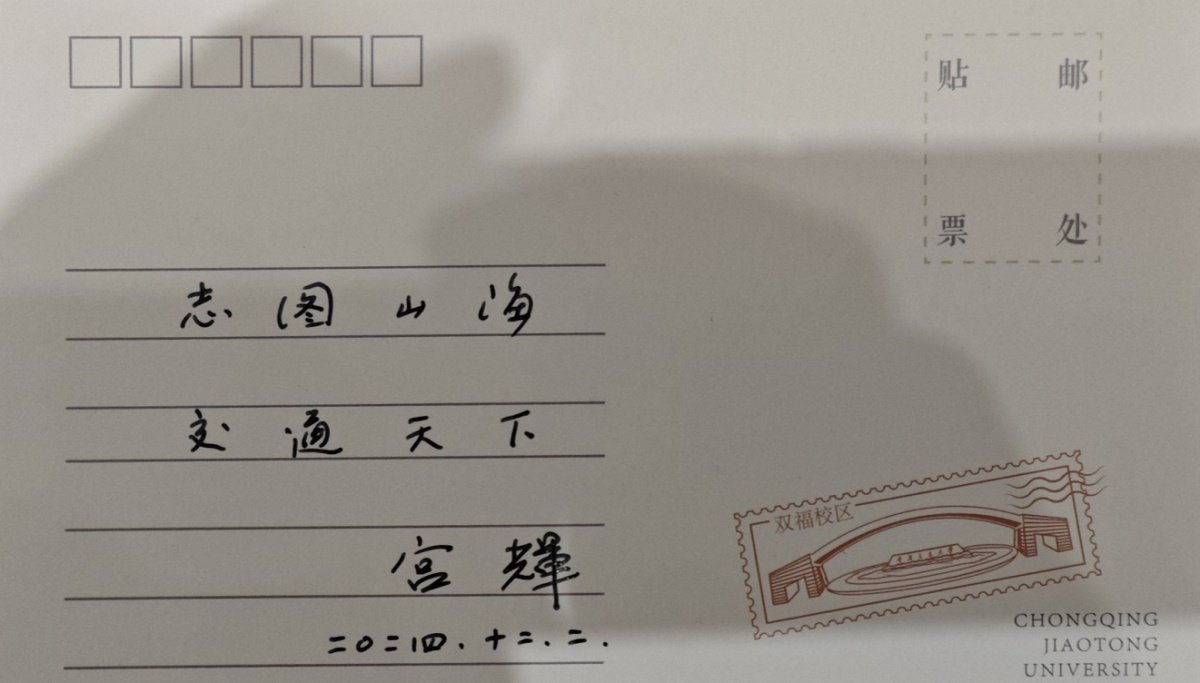 贴 邮
票 处
志图山海
交通天下
宫輝
二〇二四.十二.二.
双福校区
CHONGQING
JIAOTONG
UNIVERSITY